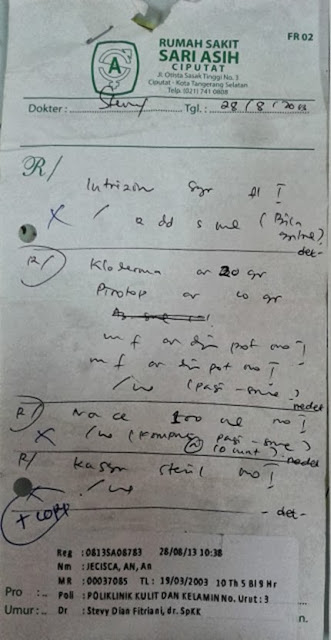 FR 02
RUMAH SAKIT
SARI ASIH
CIPUTAT
Jl. Otista Sasak Tinggi No. 3
Ciputat - Kota Tangerang Selatan
Telp. (021) 741 0808
Dokter : Stevy Tgl. : 28 / 8 / 20
R/ Syr fl I
X / 2 dd 5 ml (Bila
det-
R/ Kloderma or 20 gr
Pirotop or 10 gr
m f or pot no I
m f or pot no I
/ue (pagi - sore)
nedet
R/ Na ce 100 ml no I
X /ue (kompres pagi - sore
10 mnt) nedet
R/ Kassa steril no I
/ue
- det -
+ copy
Reg : 0813SA08783 28/08/13 10:38
Nm : JECISCA, AN, An
MR : 00037085 TL : 19/03/2003 10 Th 5 Bl 9 Hr
Pro : Poli : POLIKLINIK KULIT DAN KELAMIN No. Urut : 3
Umur : Dr : Stevy Dian Fitriani, dr. SpKK n.